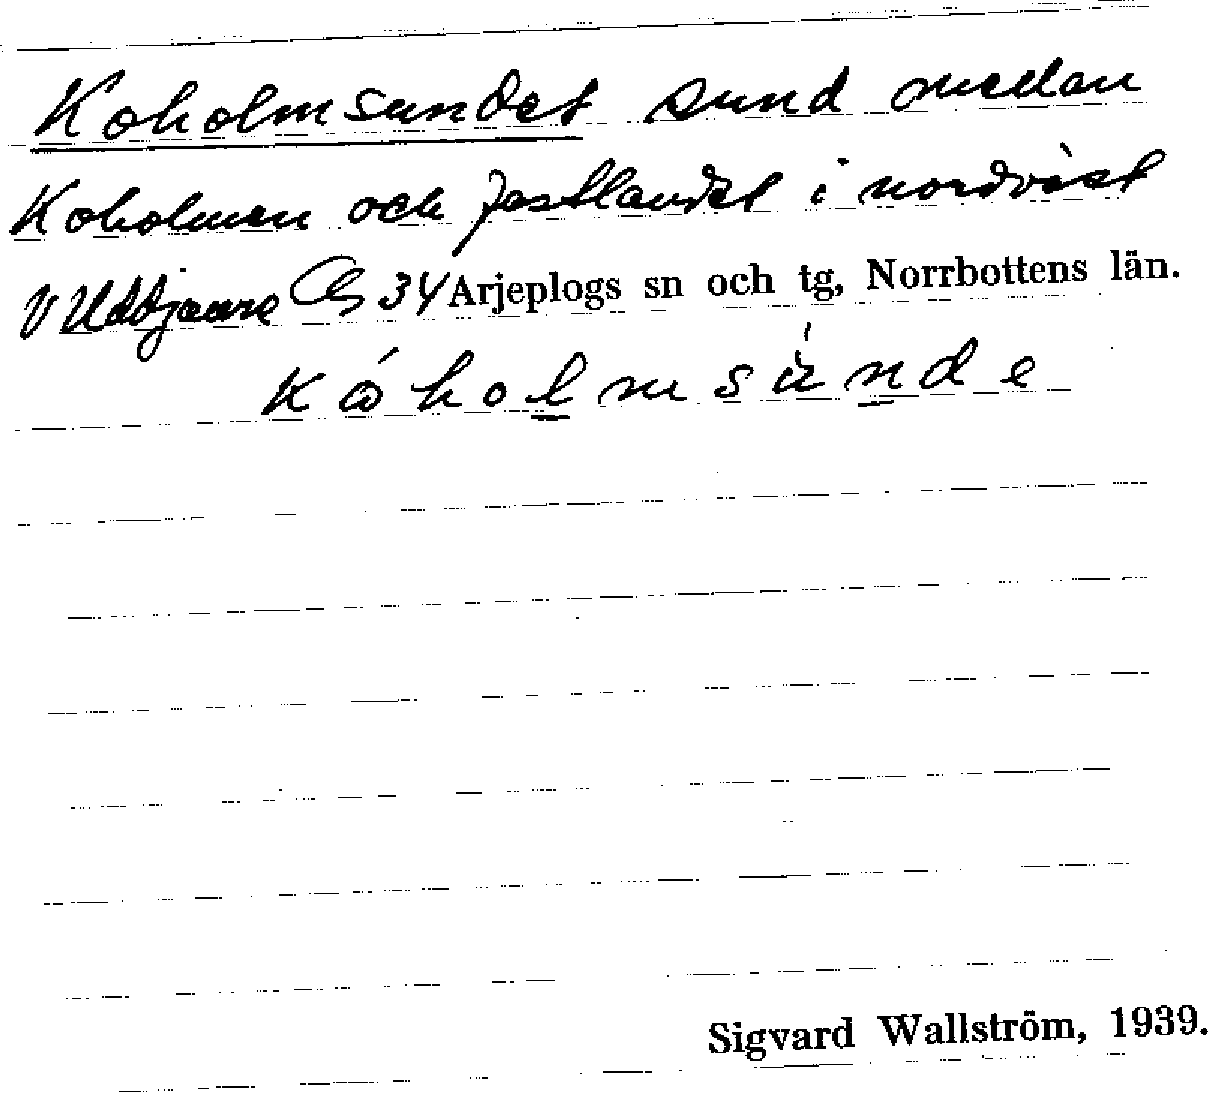 Koholmsundet sund medan
Koholmen och fastlandet i nordväst
V Uddjaure Cg 34 Arjeplogs sn och tg, Norrbottens län.
kóholmsùnde
Sigvard Wallström, 1939.